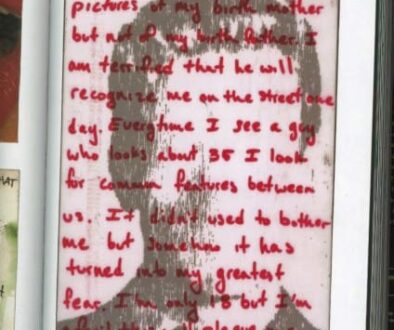 pictures of my birth mother
but not of my birth father. I
am terrified that he will
recognize me on the street one
day. Everytime I see a guy
who looks about 35 I look
for common features between
us. It didn't used to bother
me but somehow it has
turned into my greatest
fear. I'm only 18 but I'm
HAT